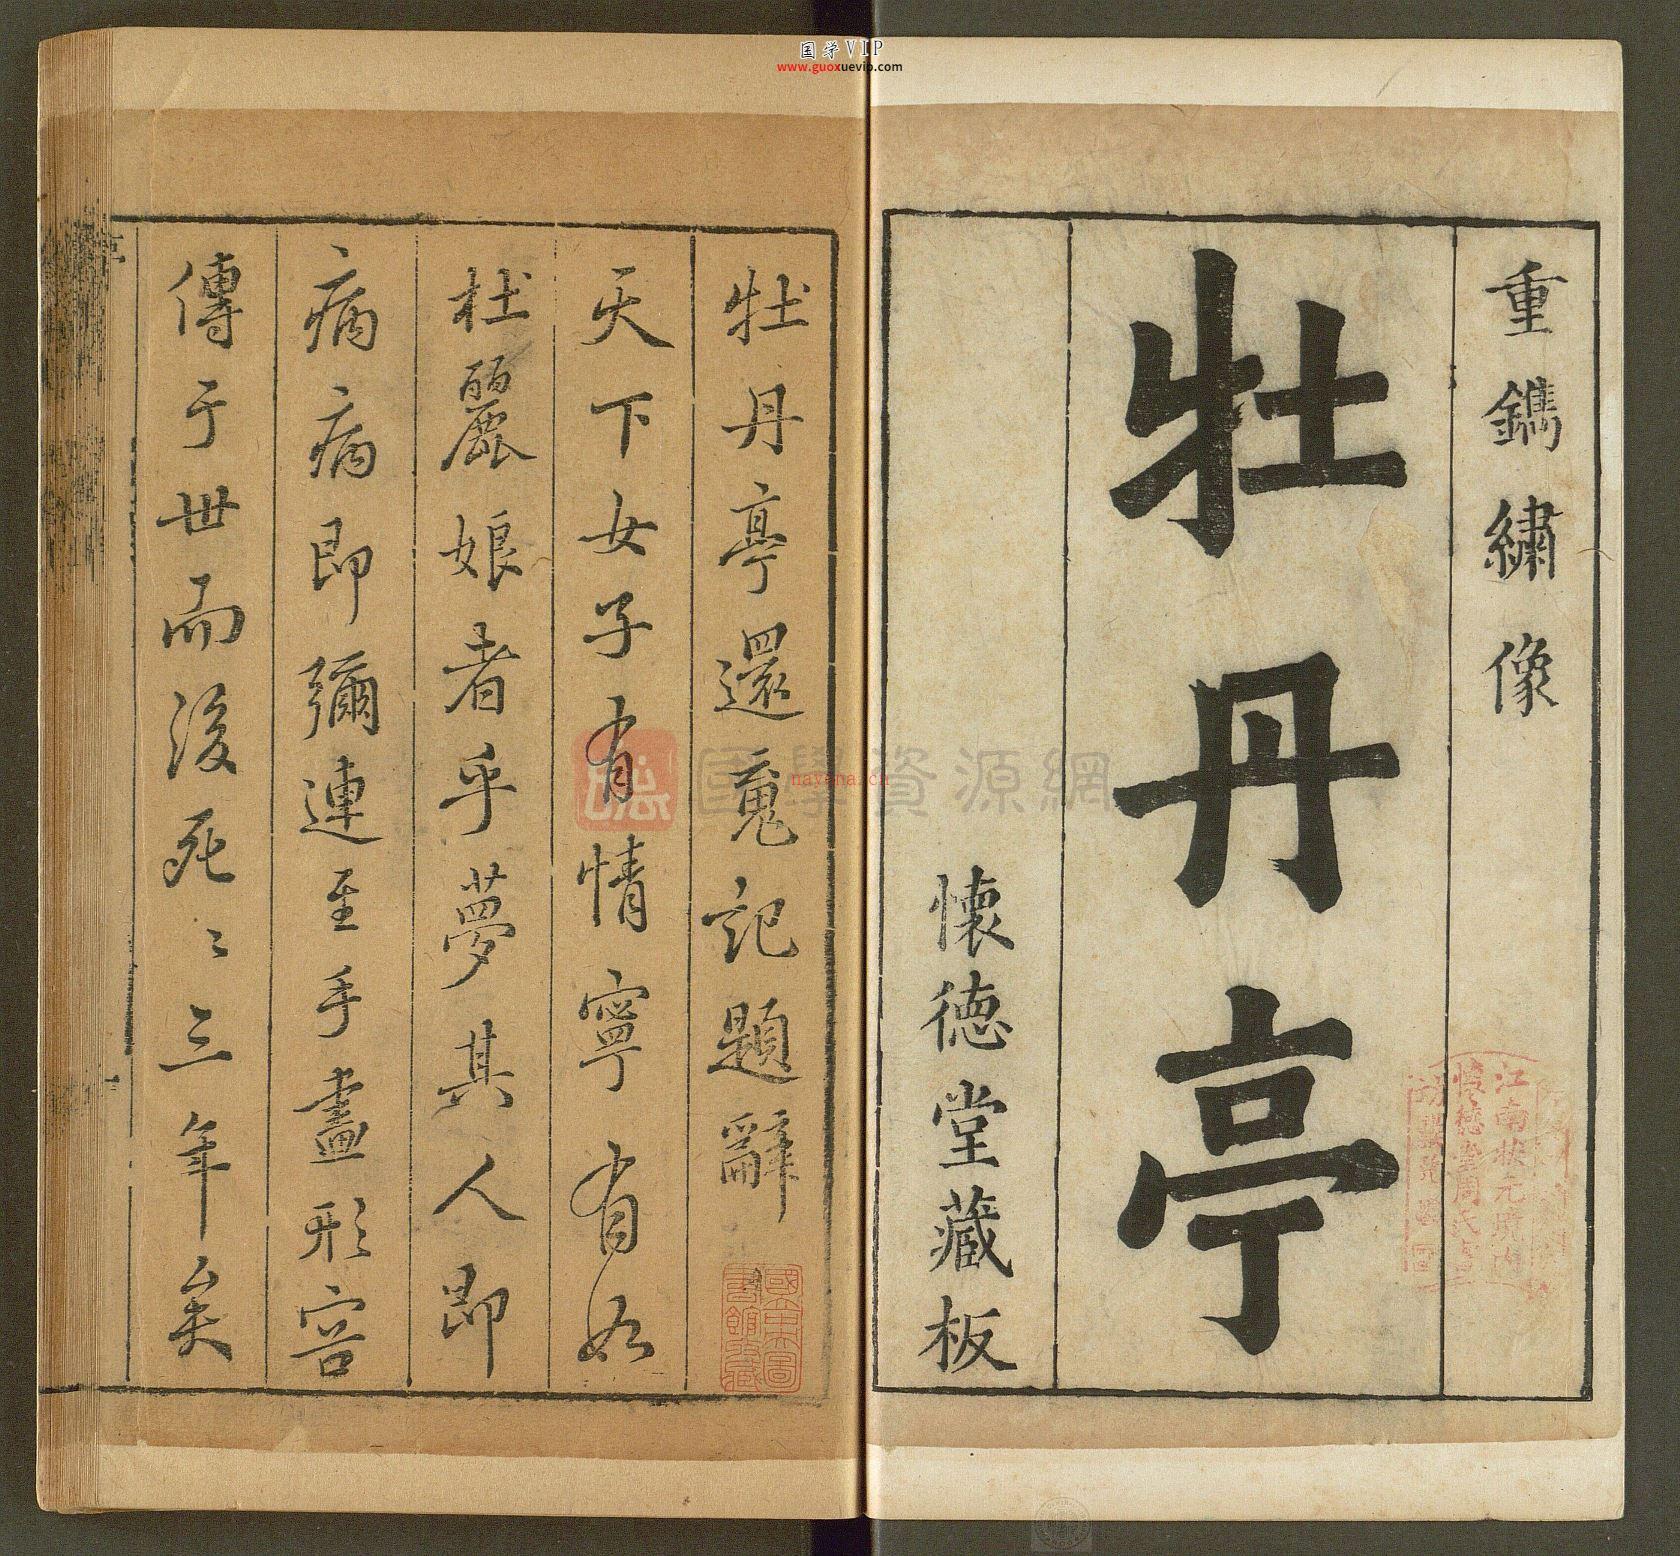 国学VIP
www.guoxuevip.com
重鐫繡像
牡丹亭
懷德堂藏板
牡丹亭還魂記題辭
天下女子有情寧有如
杜麗娘者乎夢其人即
病病即彌連至手畫形容
傳于世而後死〻三年矣
國學資源網
nayona.cn
江南狀元
懷德堂周氏